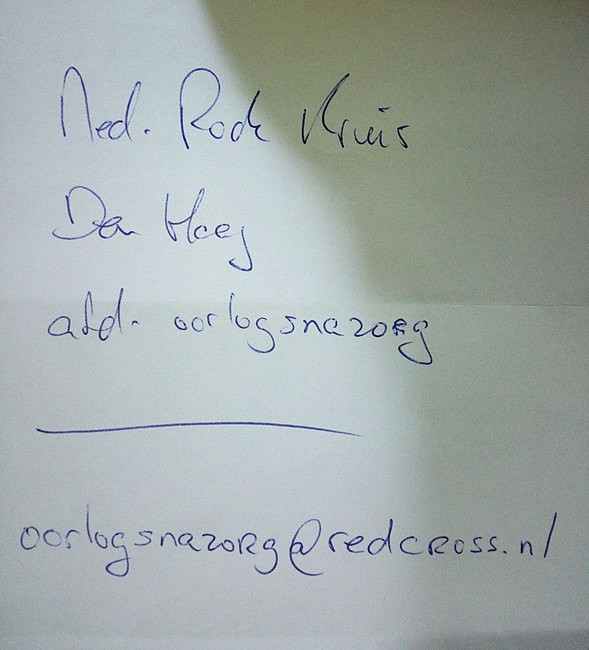 Ned. Rode Kruis
Den Haag
afd. oorlogsnazorg
oorlogsnazorg@redcross.nl